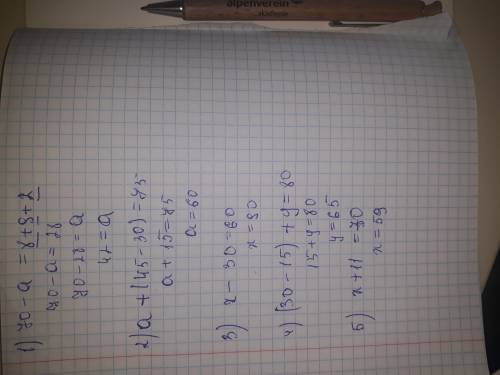 alpenverein
akademie
1) 70 - a = 8 + 8 + 2
70 - a = 28
70 - 28 = a
42 = a
2) a + (45 - 30) = 75
a + 15 = 75
a = 60
3) x - 30 = 60
x = 90
4) (30 - 15) + y = 80
15 + y = 80
y = 65
5) x + 11 = 70
x = 59